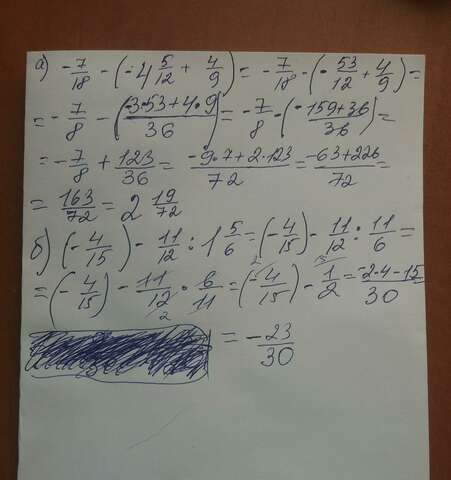 а) -7/18 - (-4 5/12 + 4/9) = -7/18 - (-53/12 + 4/9) =
= -7/8 - ((-3·53+4·9)/36) = -7/8 - ((-159+36)/36) =
= -7/8 + 123/36 = (-9·7+2·123)/72 = (-63+226)/72 =
= 163/72 = 2 19/72
б) (-4/15) - 11/12 : 1 5/6 = (-4/15) - 11/12 : 11/6 =
= (-4/15) - 11/12 · 6/11 = (-4/15) - 1/2 = (-2·4-15)/30
= -23/30